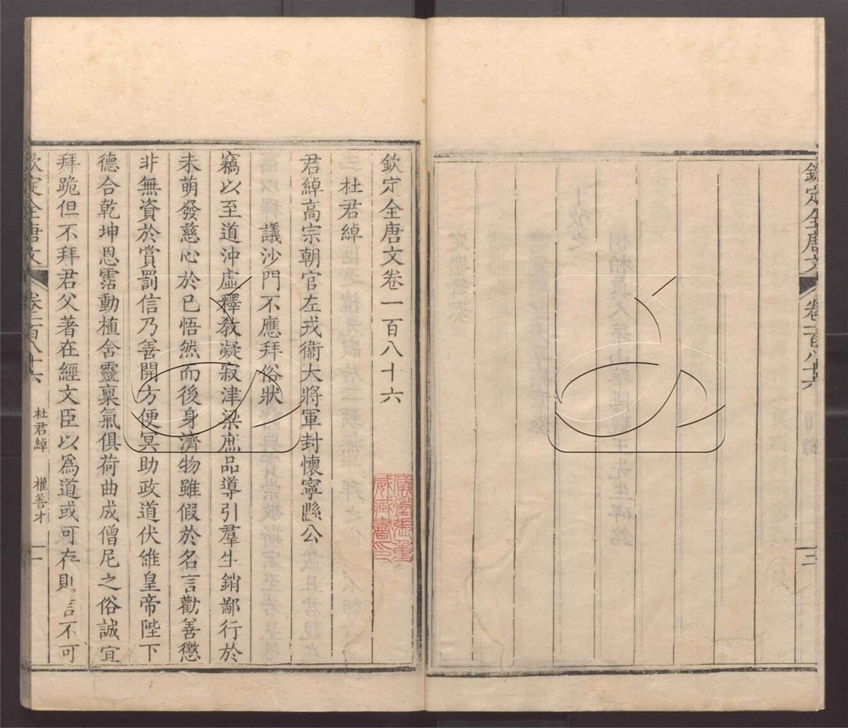 欽定全唐文 卷一百八十六
三
欽定全唐文卷一百八十六
杜君綽
君綽高宗朝官左戎衞大將軍封懷寧縣公
議沙門不應拜俗狀
竊以至道沖虛釋敎凝寂津梁庶品導引羣生銷鄙行於
未萌發慈心於已悟然而後身濟物雖假於名言勸善懲
非無資於賞罰信乃善開方便冥助政道伏維皇帝陛下
德合乾坤恩霑動植含靈稟氣俱荷曲成僧尼之俗誠宜
拜跪但不拜君父著在經文臣以爲道或可存則言不可
欽定全唐文 卷一百八十六 杜君綽 權善才 一